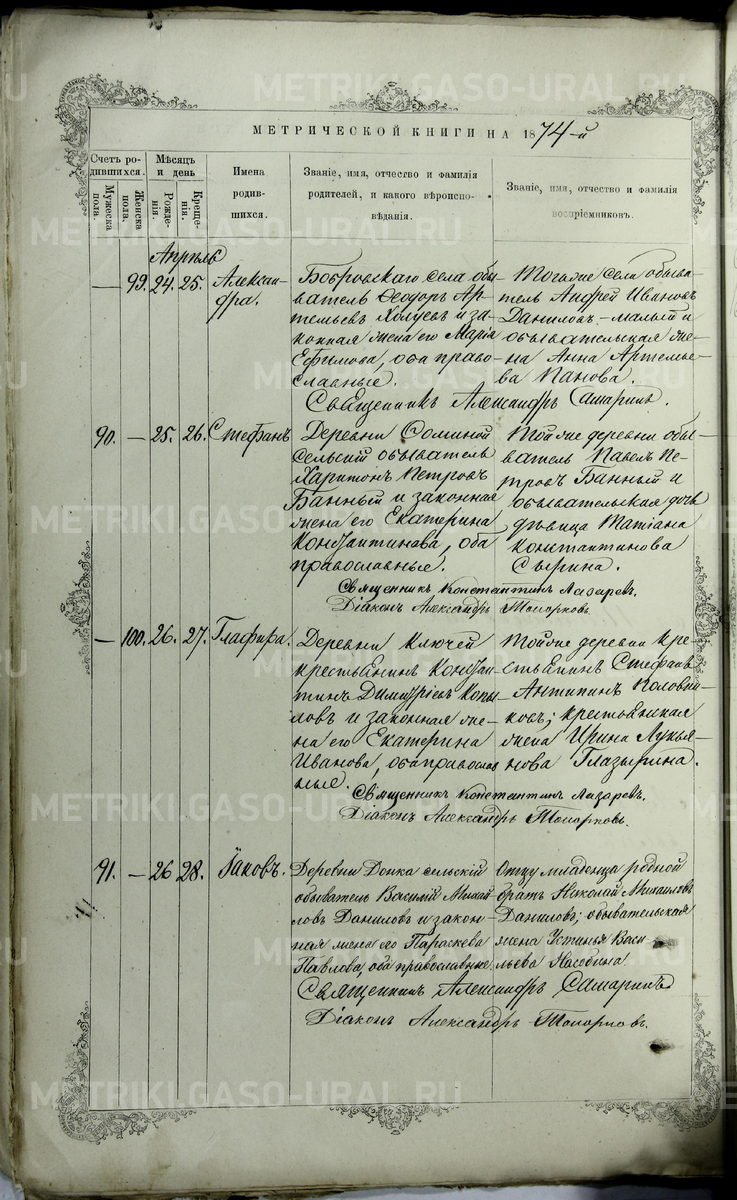 МЕТРИЧЕСКОЙ КНИГИ НА 1874-й
Счетъ родившихся.
Мужеска пола.
Женска пола.
Мѣсяцъ и день
Рожденія.
Крещенія.
Имена родившихся.
Званіе, имя, отчество и фамилія родителей, и какого вѣроисповѣданія.
Званіе, имя, отчество и фамилія воспріемниковъ.
Апрѣль
— 99. 24. 25. Алексан-
дра.
Бобровскаго села обы-
ватель Ѳеодоръ Ар-
темьевъ Холуевъ и за-
конная жена его Марія
Ефимова, оба право-
славные.
Тогоже села обыва-
тель Андрей Ивановъ
Даниловъ – малый и
обывательская же-
на Анна Артемье-
ва Панова.
Священникъ Александръ Самаринъ.
90. — 25. 26. Стефанъ
Деревни Соминой
сельскій обыватель
Харитонъ Петровъ
Банный и законная
жена его Екатерина
Константинова, оба
православные.
Тойже деревни обы-
ватель Павелъ Пе-
тровъ Банный и
обывательская дочь
дѣвица Татіана
Константинова
Сырина.
Священникъ Константинъ Лазаревъ.
Діаконъ Александръ Топорковъ.
— 100. 26. 27. Глафира.
Деревни Ключей
крестьянинъ Констан-
тинъ Димитріевъ Копы-
ловъ и законная же-
на его Екатерина
Иванова, оба православ
ные.
Тойже деревни кре-
стьянинъ Стефанъ
Антипинъ Половни-
ковъ; крестьянская
жена Ирина Лукья-
нова Глазырина.
Священникъ Константинъ Лазаревъ.
Діаконъ Александръ Топорковъ.
91. — 26 28. Іаковъ.
Деревни Донка сельскій
обыватель Василій Михай-
ловъ Даниловъ и закон-
ная жена его Параскева
Павлова, оба православные.
Отцу младенца родной
братъ Николай Михайловъ
Даниловъ; обывательская
жена Устинья Васи-
льева Насобина.
Священникъ Александръ Самаринъ
Діаконъ Александръ Топорковъ.
METRIKI.GASO-URAL.RU